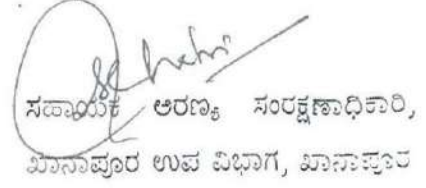 ಸಹಾಯಕ ಅರಣ್ಯ ಸಂರಕ್ಷಣಾಧಿಕಾರಿ,
ಖಾನಾಪೂರ ಉಪ ವಿಭಾಗ, ಖಾನಾಪೂರ